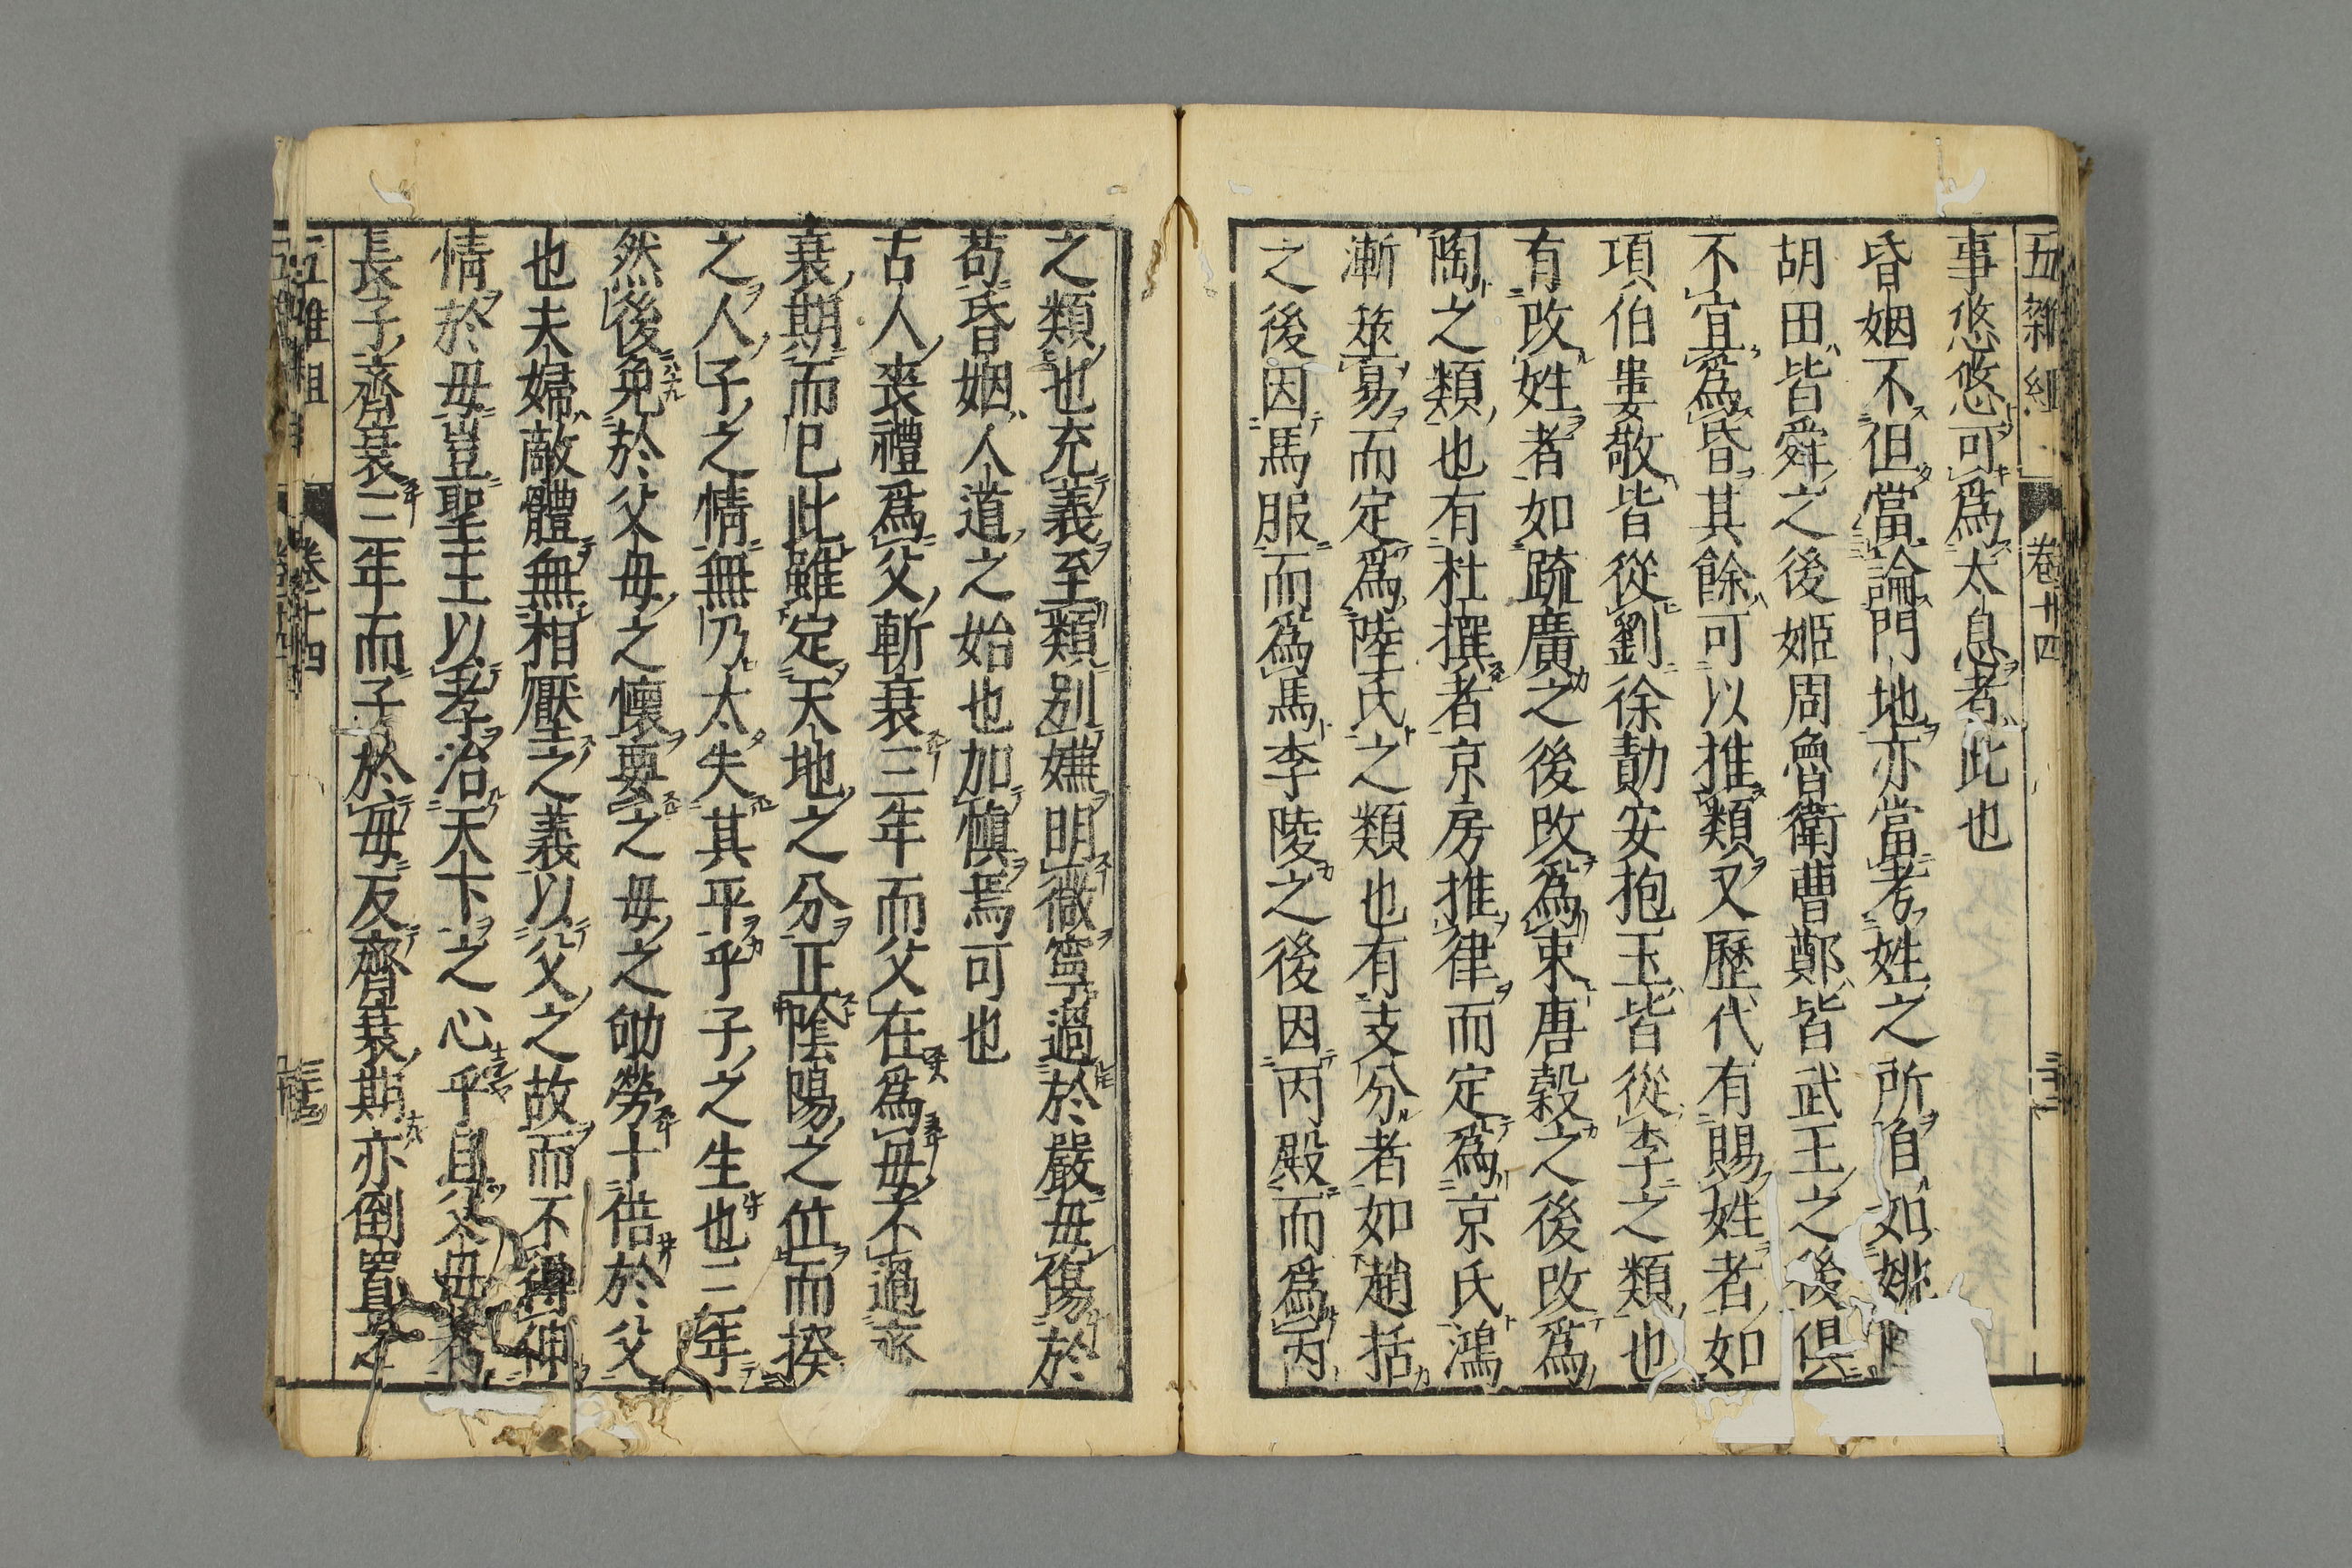 五雜組 卷十四 三十三
事悠悠可爲太息者此也
昏姻不但當論門地亦當考姓之所自如姚
胡田皆舜之後姬周魯衛曹鄭皆武王之後俱
不宜爲昏其餘可以推類又歷代有賜姓者如
項伯婁敬皆從劉徐勣安抱玉皆從李之類也
有改姓者如疏廣之後改爲束唐穀之後改爲
陶之類也有杜撰者京房推律而定爲京氏鴻
漸筮易而定爲陸氏之類也有支分者如趙括
之後因馬服而爲馬李陵之後因丙殿而爲丙
之類也充義至類别嫌明微寧過於嚴毋傷於
苟昏姻人道之始也加愼焉可也
古人喪禮爲父斬衰三年而父在爲母不過齊
衰期而已此雖定天地之分正陰陽之位而揆
之人子之情無乃太失其平乎子之生也三年
然後免於父母之懷要之母之劬勞十倍於父
也夫婦敵體無相壓之義以父之故而不得伸
情於母豈聖王以孝治天下之心乎且父母爲
長子齊衰三年而子於母反齊衰期亦倒置之
五雜組 卷十四